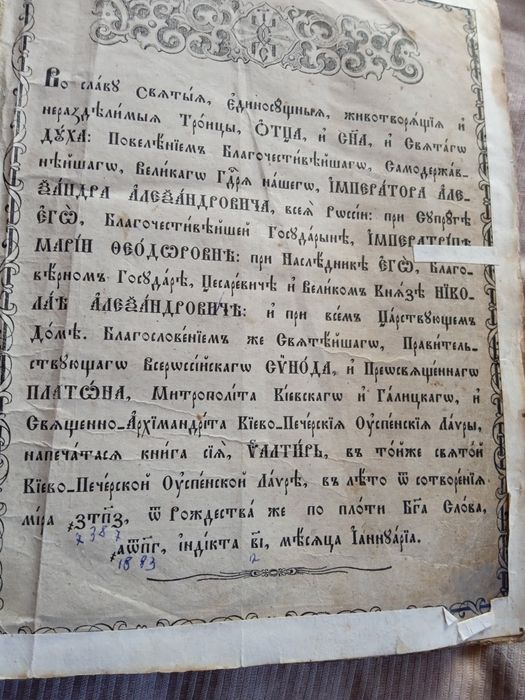 Во славу Свѧты́ѧ, Є҆диносѹ́щныѧ, животворѧ́щїѧ и҆
нераздѣли́мыѧ Трⷪ҇цы, Ѻ҆тца̀, и҆ Сн҃а, и҆ Свѧта́гѡ
Дꙋ́ха: Повелѣ́нїемъ Благочести́вѣйшагѡ, Самодержа́в-
нѣйшагѡ, Вели́кагѡ Гдⷭ҇рѧ на́шегѡ, І҆МПЕРА́ТОРА А҆ЛЕ-
ѮА́НДРА А҆ЛЕѮА́НДРОВИЧА, всеѧ̀ Рѡссі́и: при Сꙋпрꙋ́гѣ
Є҆ГѠ̀, Благочести́вѣйшей Госꙋда́рынѣ, І҆МПЕРАТРИ́ЦѢ
МАРІ́И ѲЕО́ДѠРОВНѢ: при Наслѣ́дникѣ Є҆гѡ̀, Благо-
вѣ́рномъ Госꙋда́рѣ, Цесаре́вичѣ и҆ Вели́комъ Кнѧ́зѣ НІКО-
ЛА́Ѣ А҆ЛЕѮА́НДРОВИЧѢ: и҆ при все́мъ Ца́рствꙋющемъ
До́мѣ. Благослове́нїемъ же Свѧтѣ́йшагѡ, Прави́тель-
ствꙋющагѡ Всерѡссі́йскагѡ СѴНО́ДА, и҆ Преѡсвѧще́ннагѡ
ПЛАТѠ́НА, Митрополі́та Кі́евскагѡ и҆ Га́лицкагѡ, и҆
Свѧще́нно-А҆рхїмандрі́та Кі́ево-Пече́рскїѧ Оу҆спе́нскїѧ Ла́vры,
напеча́тасѧ кни́га сїѧ̀, ѰАЛТИ́РЬ, въ то́йже свѧто́й
Кі́ево-Пече́рской Оу҆спе́нской Ла́vрѣ, въ лѣ́то ѿ сотворе́нїѧ
мі́ра ҂зтп҃з, ѿ Рождества́ же по пло́ти Бг҃а Сло́ва,
7387
҂аѡ҃пг, і҆нді́кта в҃і, мѣ́сѧца І҆аннꙋа́рїа.
1883 12